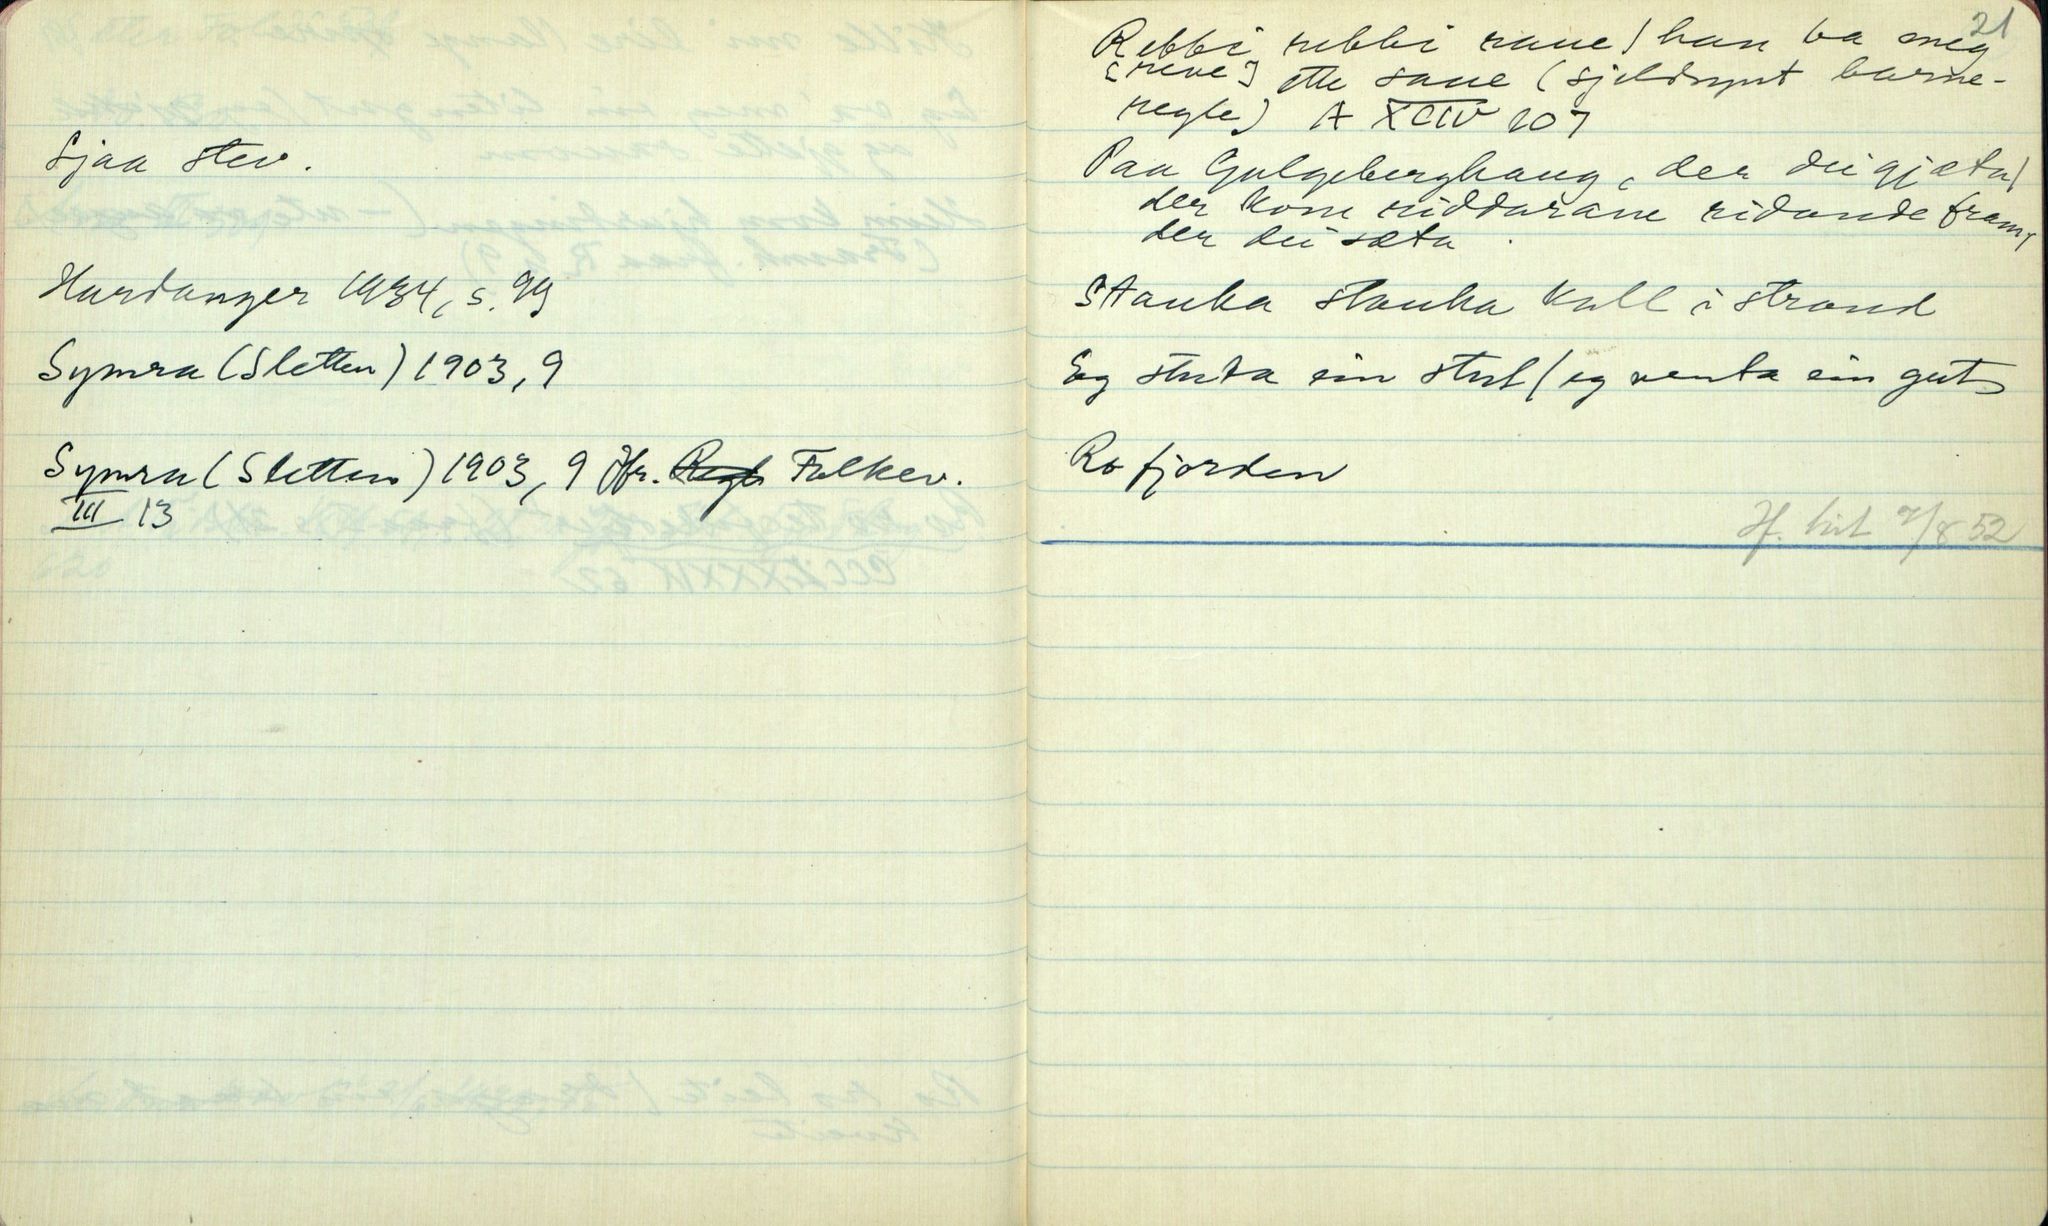 Sjaa stev.
Hardanger 1934, s. 99
Symra (Sletten) 1903, 9
Symra (Sletten) 1903, 9 Jfr. Folkev.
III 13
21
Rebbi rebbi raue / han ba meg
[reve] ette saue (sjeldsynt barne-
regle) A XCIV 107
Paa Gulgeberghaug, der dei gjæta /
der kom riddarane ridande fram,
der dei sæta.
Stauka stauka kall i strand
Eg stuta ein stut / eg venta ein gut
Ro fjorden
hit 7/8 52